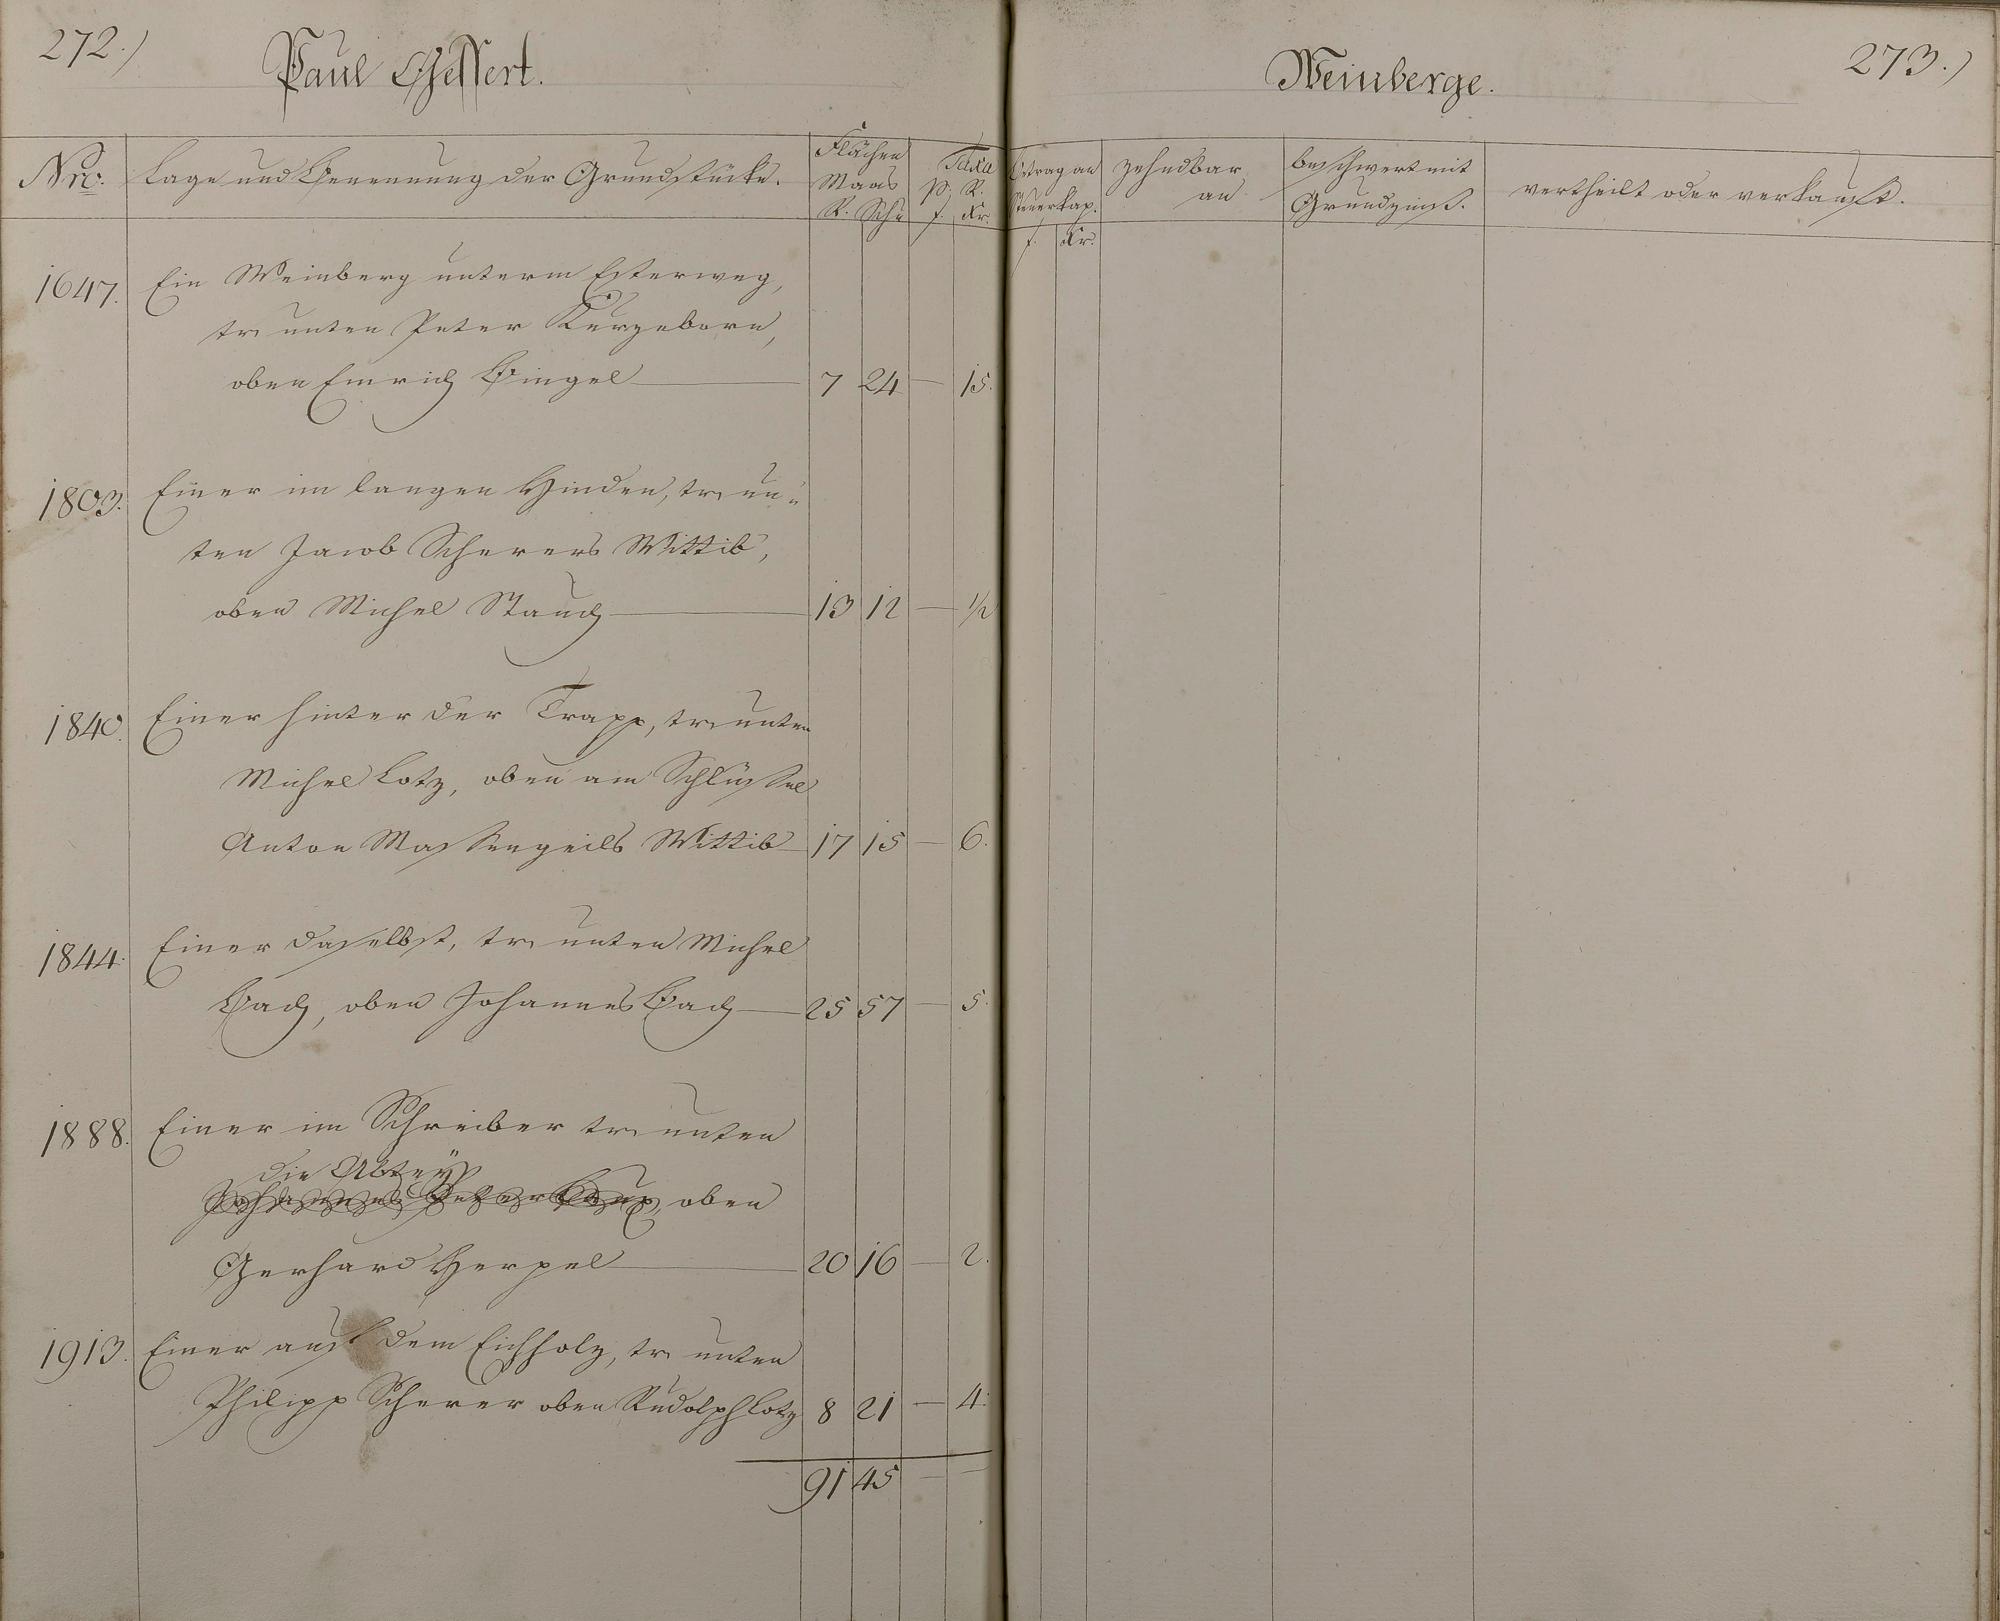 272.)
Paul Gessert.
Weinberge.
273.)
Nro.
Lage und Benennung der Grundstücke.
Flächen
Maas
R. Schu
Taxa
p. R.
f. Kr.
Betrag an
Steuerkap.
f. Kr.
zehndbar
an
beschwert mit
Grundzinß.
vertheilt oder verkauft.
1647. Ein Weinberg unterm Esterweg,
unten Peter Kurzeborn,
oben Emrich Bingel 7 24 — 15.
1803. Einer im langen Hinden, un-
ten Jacob Scherers Wittib,
oben Michel Stauch 13 12 — 1/2
1840. Einer hinter der Trapp, unten
Michel Lotz, oben am Schlüssel
Anton Massengeils Wittib 17 15 — 6.
1844. Einer daselbst, unten Michel
Bach, oben Johannes Bach 25 57 — 5.
1888. Einer im Schreiber unten
die Abtey
oben
Gerhard Herpel 20 16 — 2.
1913. Einer auf dem Eichholz, unten
Philipp Scherer oben Rudolph Lotz 8 21 — 4.
91 45 — —